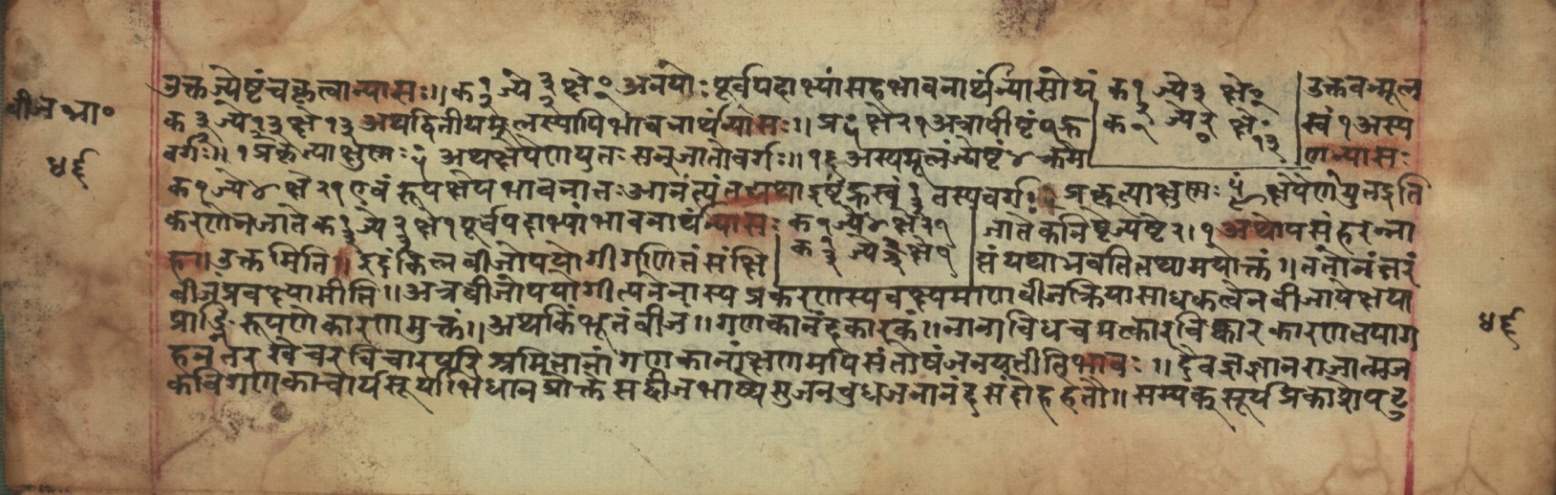 उक्तज्येष्टं च कृत्वा न्यासः॥ क १/३ ज्ये २/३ क्षे ० अनयोः पूर्वपदाभ्यां सह भावनार्थं न्यासोयं क १ ज्ये ३ क्षे उक्तवन्मूल
बीज भा॰
क ज्ये क्षे १३ अथ द्वितीयमूलस्यापि भावनार्थं न्यासः॥ क्षे २१ अत्रापीष्टं क ज्ये क्षे १३ स्वं १ अस्य
वर्गः॥ १ प्रकृत्या क्षुण्णः अथ क्षेपेण युतः सन् जातो वर्गः॥ १६ अस्य मूलं ज्येष्टं ४ क्रमे ण न्यासः
४६
क १ ज्ये ४ क्षे २१ एवं रूपक्षेपभावनातः आनंत्यं तद्यथा इष्टं ह्रस्वं तस्य वर्गः प्रकृत्या क्षुण्णः क्षेपेण युत इति
करणेन जाते क ज्ये क्षे १ पूर्वपदाभ्यां भावनार्थं न्यासः क १ ज्ये ४ क्षे २१ जाते कनिष्टज्येष्टे २।१ अथोपसंहरन्ना
ह॥ उक्तमिति॥ इदं किल बीजोपयोगी गणितं संक्षि क ज्ये क्षे १ प्तं यथा भवति तथा मयोक्तं॥ ततोनंतरं
बीजं प्रवक्ष्यामीति॥ अत्र बीजोपयोगीत्यनेनास्य प्रकरणस्य वक्ष्यमाणबीजक्रियासाधकत्वेन बीजापेक्षया
प्राङ्निरूपणे कारणमुक्तं॥ अथ किंभूतं बीज॥ गणकानंदकारकं॥ नानाविधचमत्कारविकारकारणत्वयोग
४६
हनतर खेचरविचारपरि श्रमितानां गणकानां क्षणमपि संतोषं जनयतीति भावः॥ दैवज्ञज्ञानराजात्मज
कविगणकाचार्यसूर्याभिधानप्रोक्ते सद्बीजभाष्ये सुजनबुधजनानंदसंदोहहेतौ॥ सम्यक् सूर्यप्रकाशे पटु